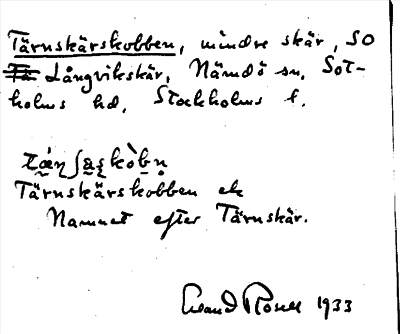 Tärnskärskobben, mindre skär, SO
Långvikskär, Nämdö sn, Sot-
holms hd, Stockholms l.
Tärnskärskobben ek
Namnet efter Tärnskär.
1933